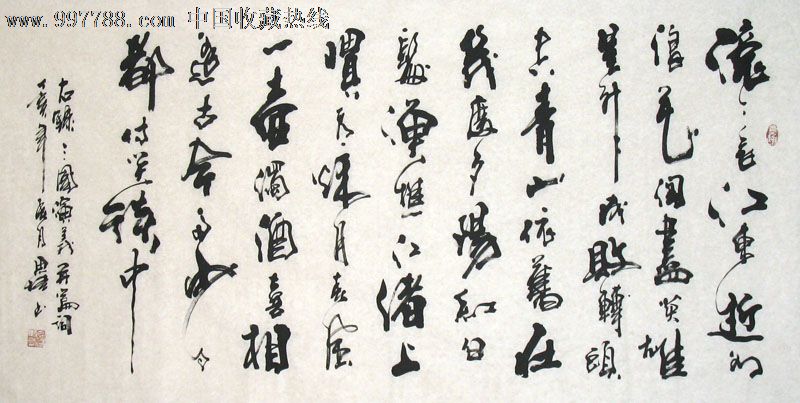 www.997788.com 中国收藏热线
滚〻長江東逝水
浪花淘盡英雄
是非成敗轉頭
空青山依舊在
幾度夕陽紅白
髮漁樵江渚上
慣看秋月春風
一壺濁酒喜相
逢古今多少事
都付笑談中
右錄三國演義開篇詞
年夏月